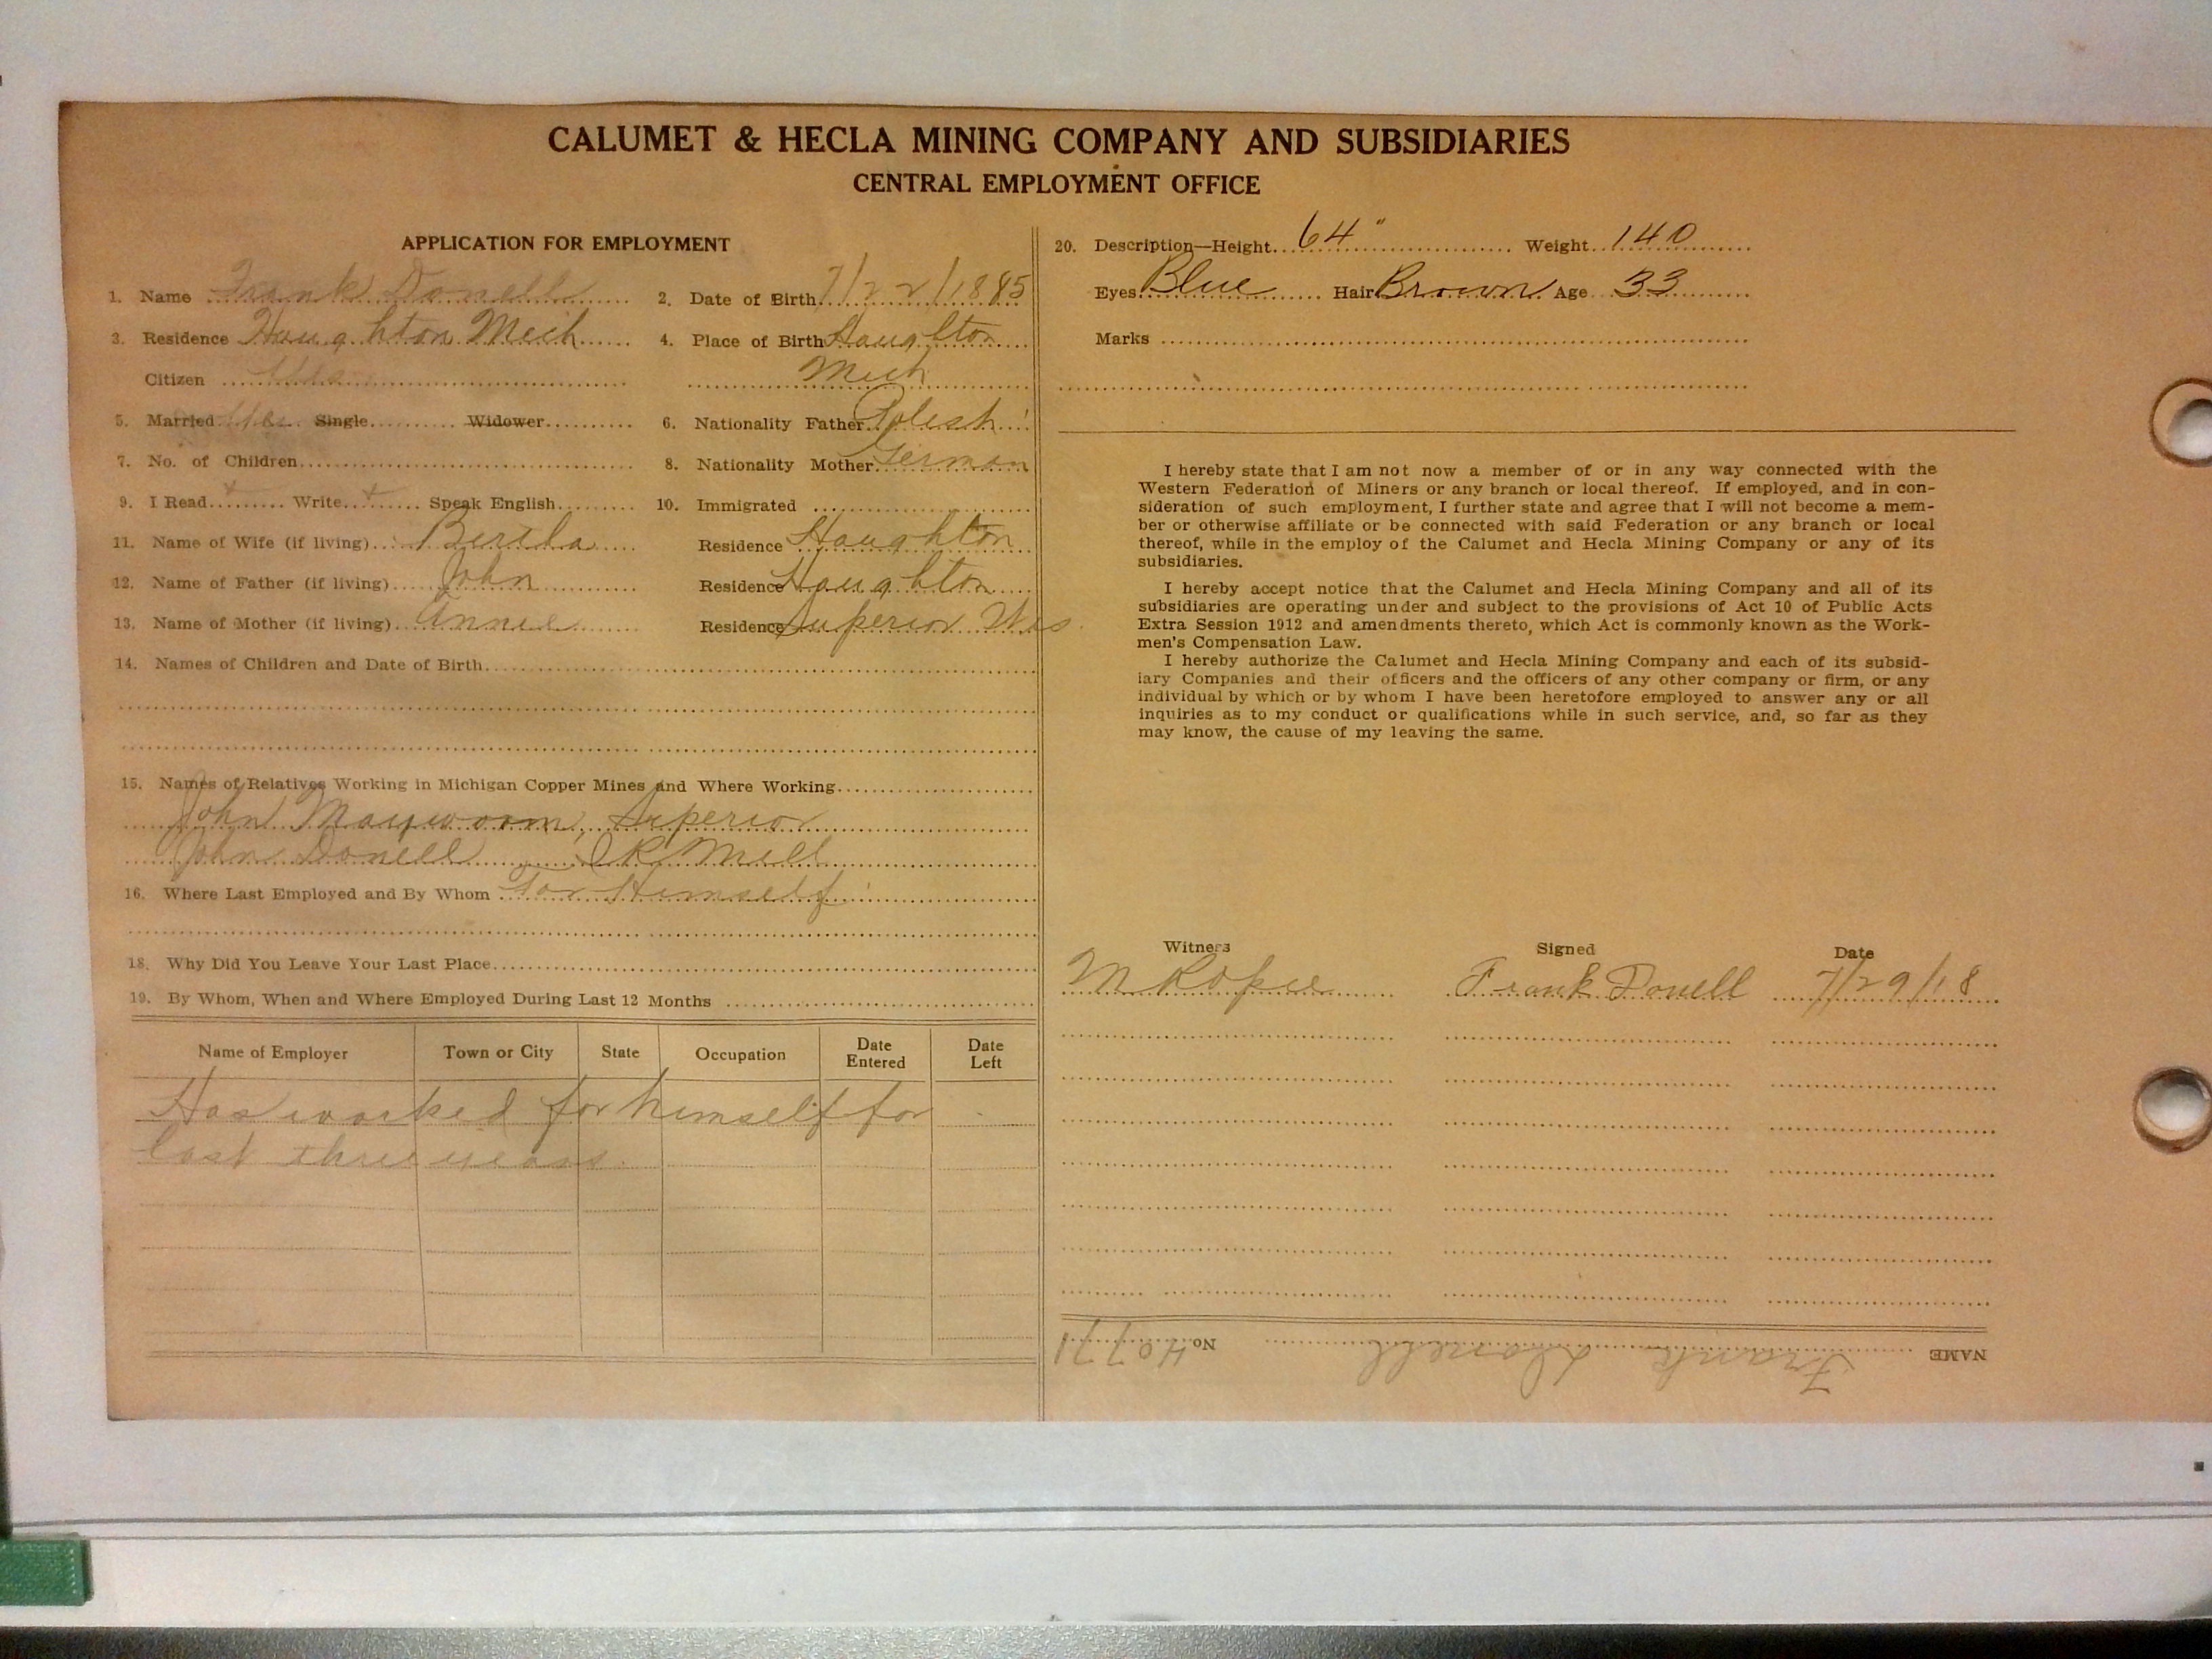 CALUMET & HECLA MINING COMPANY AND SUBSIDIARIES
CENTRAL EMPLOYMENT OFFICE
APPLICATION FOR EMPLOYMENT
1. Name Frank Donell 2. Date of Birth 7/22/1885
3. Residence Houghton Mich 4. Place of Birth Houghton
Citizen Yes Mich
5. Married Yes Single Widower 6. Nationality Father Polish
7. No. of Children 8. Nationality Mother German
9. I Read x Write x Speak English 10. Immigrated
11. Name of Wife (if living) Bertha Residence Houghton
12. Name of Father (if living) John Residence Houghton
13. Name of Mother (if living) Annie Residence Superior Wis.
14. Names of Children and Date of Birth
15. Names of Relatives Working in Michigan Copper Mines and Where Working
John Mayworm, Superior
John Donell, I R Mill
16. Where Last Employed and By Whom For Himself
18. Why Did You Leave Your Last Place
19. By Whom, When and Where Employed During Last 12 Months
Name of Employer Town or City State Occupation Date Entered Date Left
Has worked for himself for
last three years.
20. Description—Height 64" Weight 140
Eyes Blue Hair Brown Age 33
Marks
I hereby state that I am not now a member of or in any way connected with the
Western Federation of Miners or any branch or local thereof. If employed, and in con-
sideration of such employment, I further state and agree that I will not become a mem-
ber or otherwise affiliate or be connected with said Federation or any branch or local
thereof, while in the employ of the Calumet and Hecla Mining Company or any of its
subsidiaries.
I hereby accept notice that the Calumet and Hecla Mining Company and all of its
subsidiaries are operating under and subject to the provisions of Act 10 of Public Acts
Extra Session 1912 and amendments thereto, which Act is commonly known as the Work-
men's Compensation Law.
I hereby authorize the Calumet and Hecla Mining Company and each of its subsid-
iary Companies and their officers and the officers of any other company or firm, or any
individual by which or by whom I have been heretofore employed to answer any or all
inquiries as to my conduct or qualifications while in such service, and, so far as they
may know, the cause of my leaving the same.
Witness Signed Date
M Frank Donell 7/29/18
NAME Frank Donell No. 40771